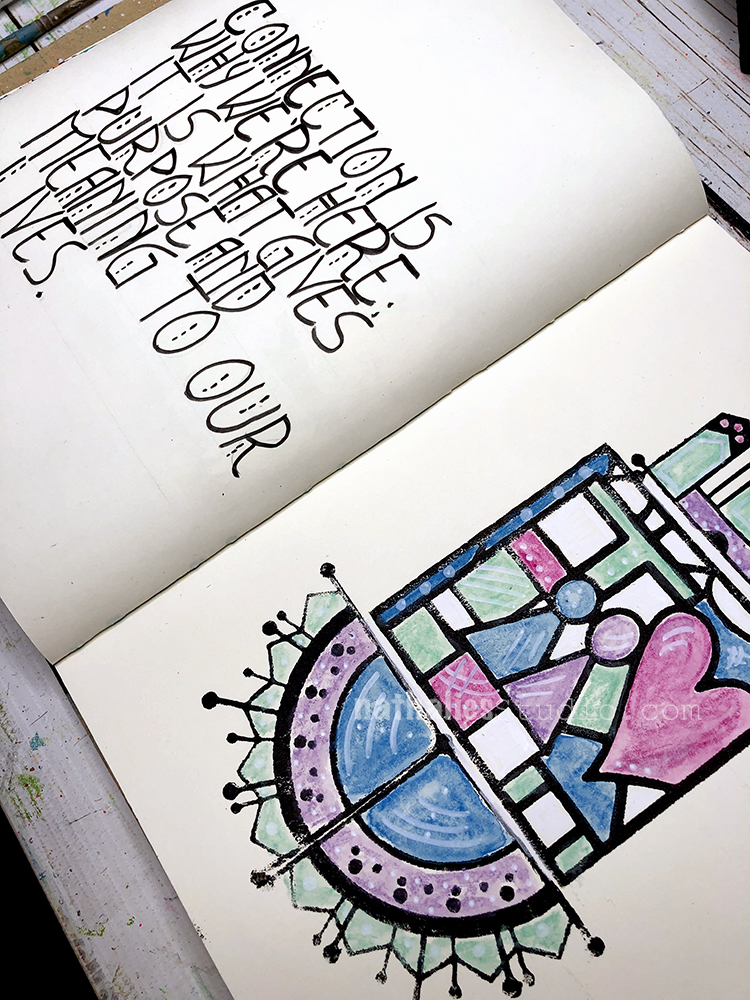 CONNECTION IS
WHY WE'RE HERE.
IT IS WHAT GIVES
PURPOSE AND
MEANING TO OUR
LIVES.
nathaliesstudio.com